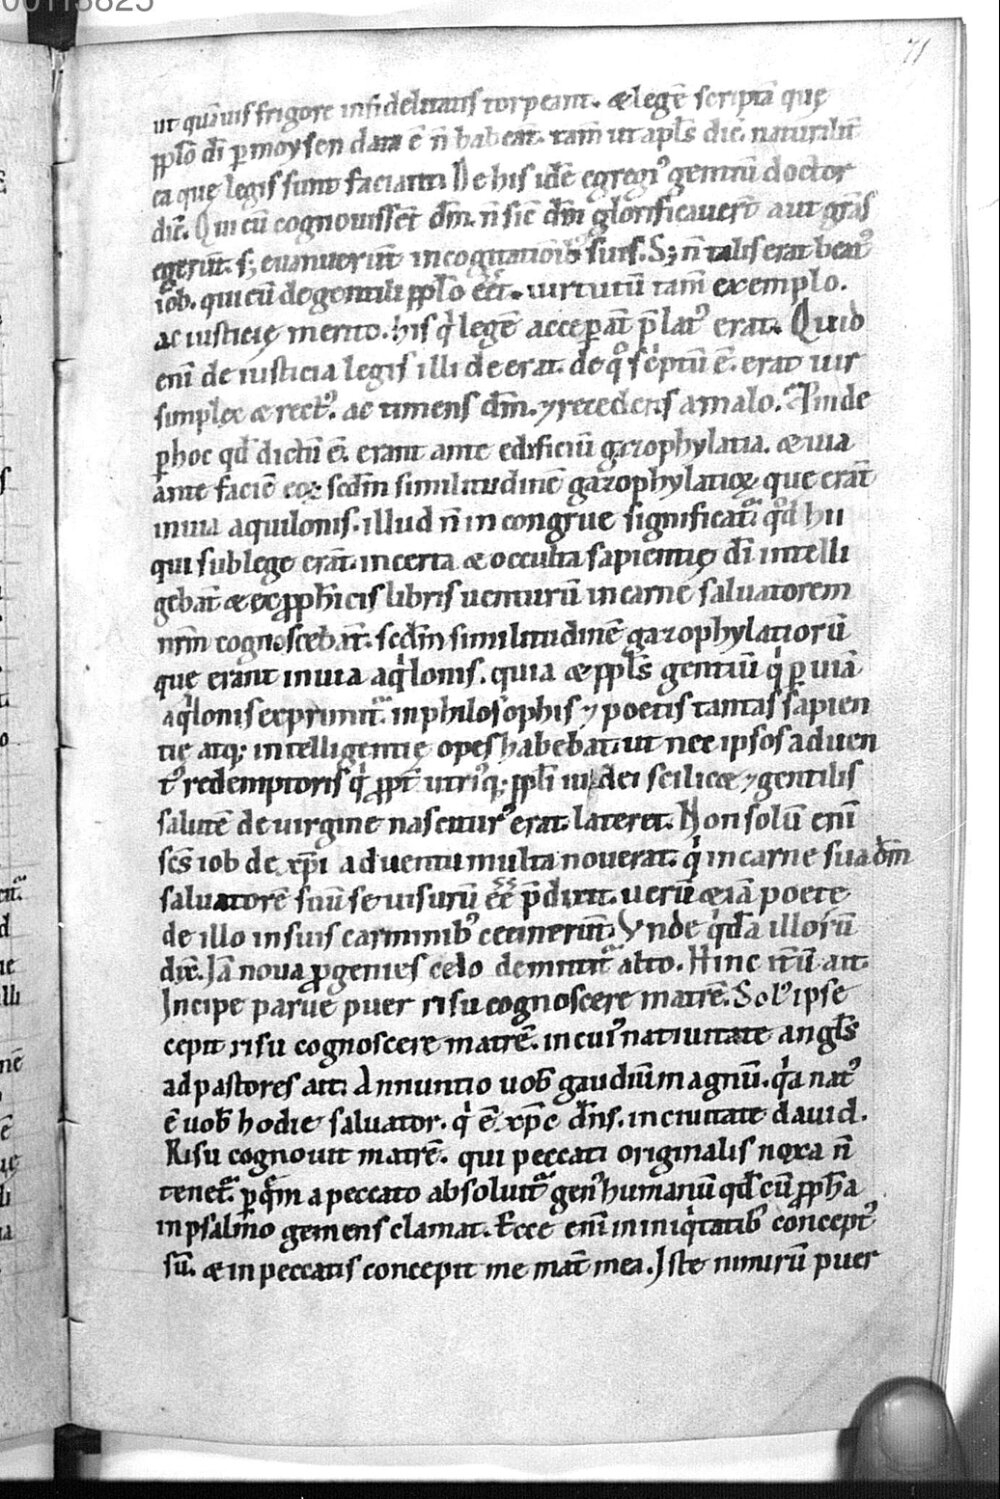 00113825
71
ut quāuis frigore infidelitatis torpeant. & legē scriptā quę
pplo di p moysen data ē n̄ habeāt. tam̄ ut apls dic̄. naturalit̄
ea que legis sunt faciant. De his idē egregi᾿ gentiū doctor
dic̄. Qui cū cognouissēt dm̄. n̄ sic̄ dm̄ glorificauerūt aut grās
egerūt. s; euanuerūt in cogitationib᾿ suis. S; n̄ talis erat beat᾿
iob. qui cū de gentili pplo eēt. uirtutū tam̄ exemplo.
ac iusticię merito. his q¹ legē acceperāt plat᾿ erat. Quid
eni de iusticia legis illi deerat. de q° scriptū ē. erat uir
simplex & rect᾿. ac timens dm̄. ⁊ recedens a malo. Proinde
p hoc qd dictū ē. erant ante edificiū gazophylatia. & uia
ante faciē eoꝝ scdm̄ similitudinē gazophylatioꝝ que erāt
in uia aquilonis. illud n̄ incongrue significat᷑ qd hii
qui sub lege erāt. incerta & occulta sapientię di intelli
gebāt & ex pphicis libris uenturū in carne saluatorem
nrm̄ cognoscebāt. scdm̄ similitudinē gazophylatiorū
que erant in uia aq¹lonis. quia & ppls gentiū q¹ p uiā
aq¹lonis exprimit᷑. in philosophis ⁊ poetis tantas sapien
tię atq; intelligentię opes habebat. ut nec ipsos aduen
t᾿ redemptoris q¹ ppt̄ utri᾿q; ppli iudei scilic& ⁊ gentilis
salutē de uirgine nascitur᾿ erat. lateret. Non solū eni
scs iob de xp̄i aduentu multa nouerat. q¹ in carne sua dm̄
saluatorē suū se uisurū eē pdixit. uerū & iā poete
de illo in suis carminib᾿ cecinerunt. Vnde q¹dā illorū
dix̄. Iā noua pgenies celo demittit᷑ alto. Hinc itū ait.
Incipe parue puer risu cognoscere matrē. Sol᾿ ipse
cepit risu cognoscere matrē. in cui᾿ natiuitate angls
ad pastores ait. Annuntio uob gaudiū magnū. q¹a nat᾿
ē uob hodie saluator. q¹ ē xp̄c dn̄s. in ciuitate dauid.
Risu cognouit matrē. qui peccati originalis noxa n̄
tenet᷑. p quē a peccato absoluit᷑ gen᾿ humanū qd cū ppha
in psalmo gemens clamat. Ecce eni in iniq¹tatib concept᾿
sū. & in peccatis concepit me mat̄ mea. Iste nimirū puer